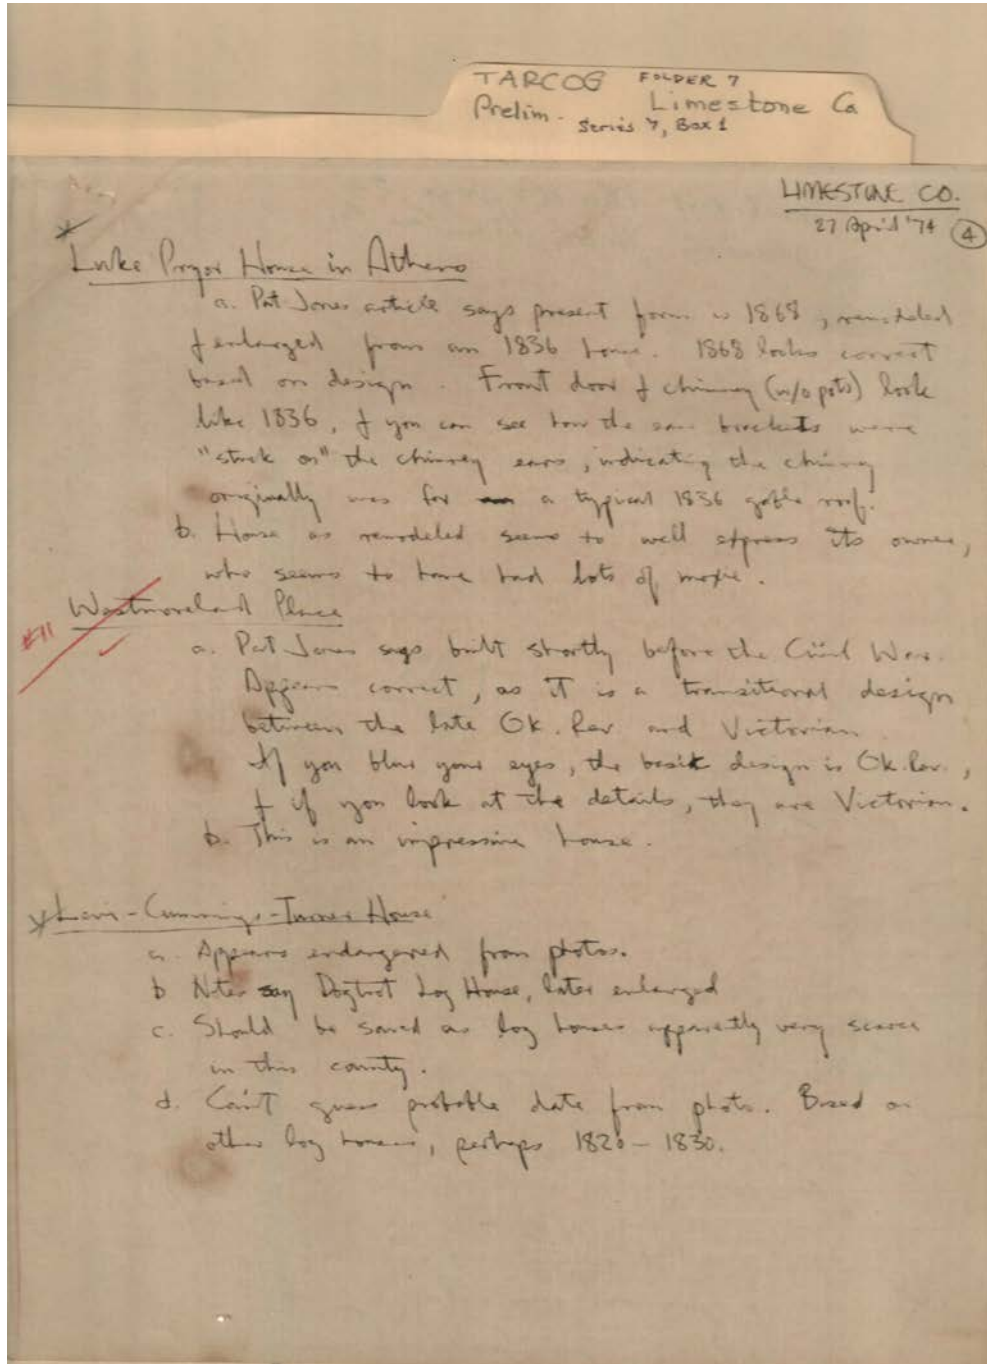 TARCOG FOLDER 7
Prelim. Limestone Co
Series 7, Box 1
LIMESTONE CO.
27 April '74 4
Luke Pryor House in Athens
a. Pat Jones article says present form is 1868, remodeled
& enlarged from an 1836 house. 1868 looks correct
based on design. Front door & chimney (w/o pots) look
like 1836, & you can see how the brackets were
"stuck on" the chimney ears, indicating the chimney
originally was for a typical 1836 gable roof.
b. House as remodeled seems to well express its owner,
who seems to have had lots of moxie.
#11 Westmoreland Place
a. Pat Jones says built shortly before the Civil War.
Appears correct, as it is a transitional design
between the late Gk. Rev and Victorian.
If you blur your eyes, the basic design is Gk. Rev.,
& if you look at the details, they are Victorian.
b. This is an impressive house.
-Cummings-Turner House
a. Appears endangered from photos.
b Notes say Dogtrot Log House, later enlarged
c. Should be saved as log houses apparently very scarce
in this county.
d. Can't guess probable date from photo. Based on
other log houses, perhaps 1820-1830.